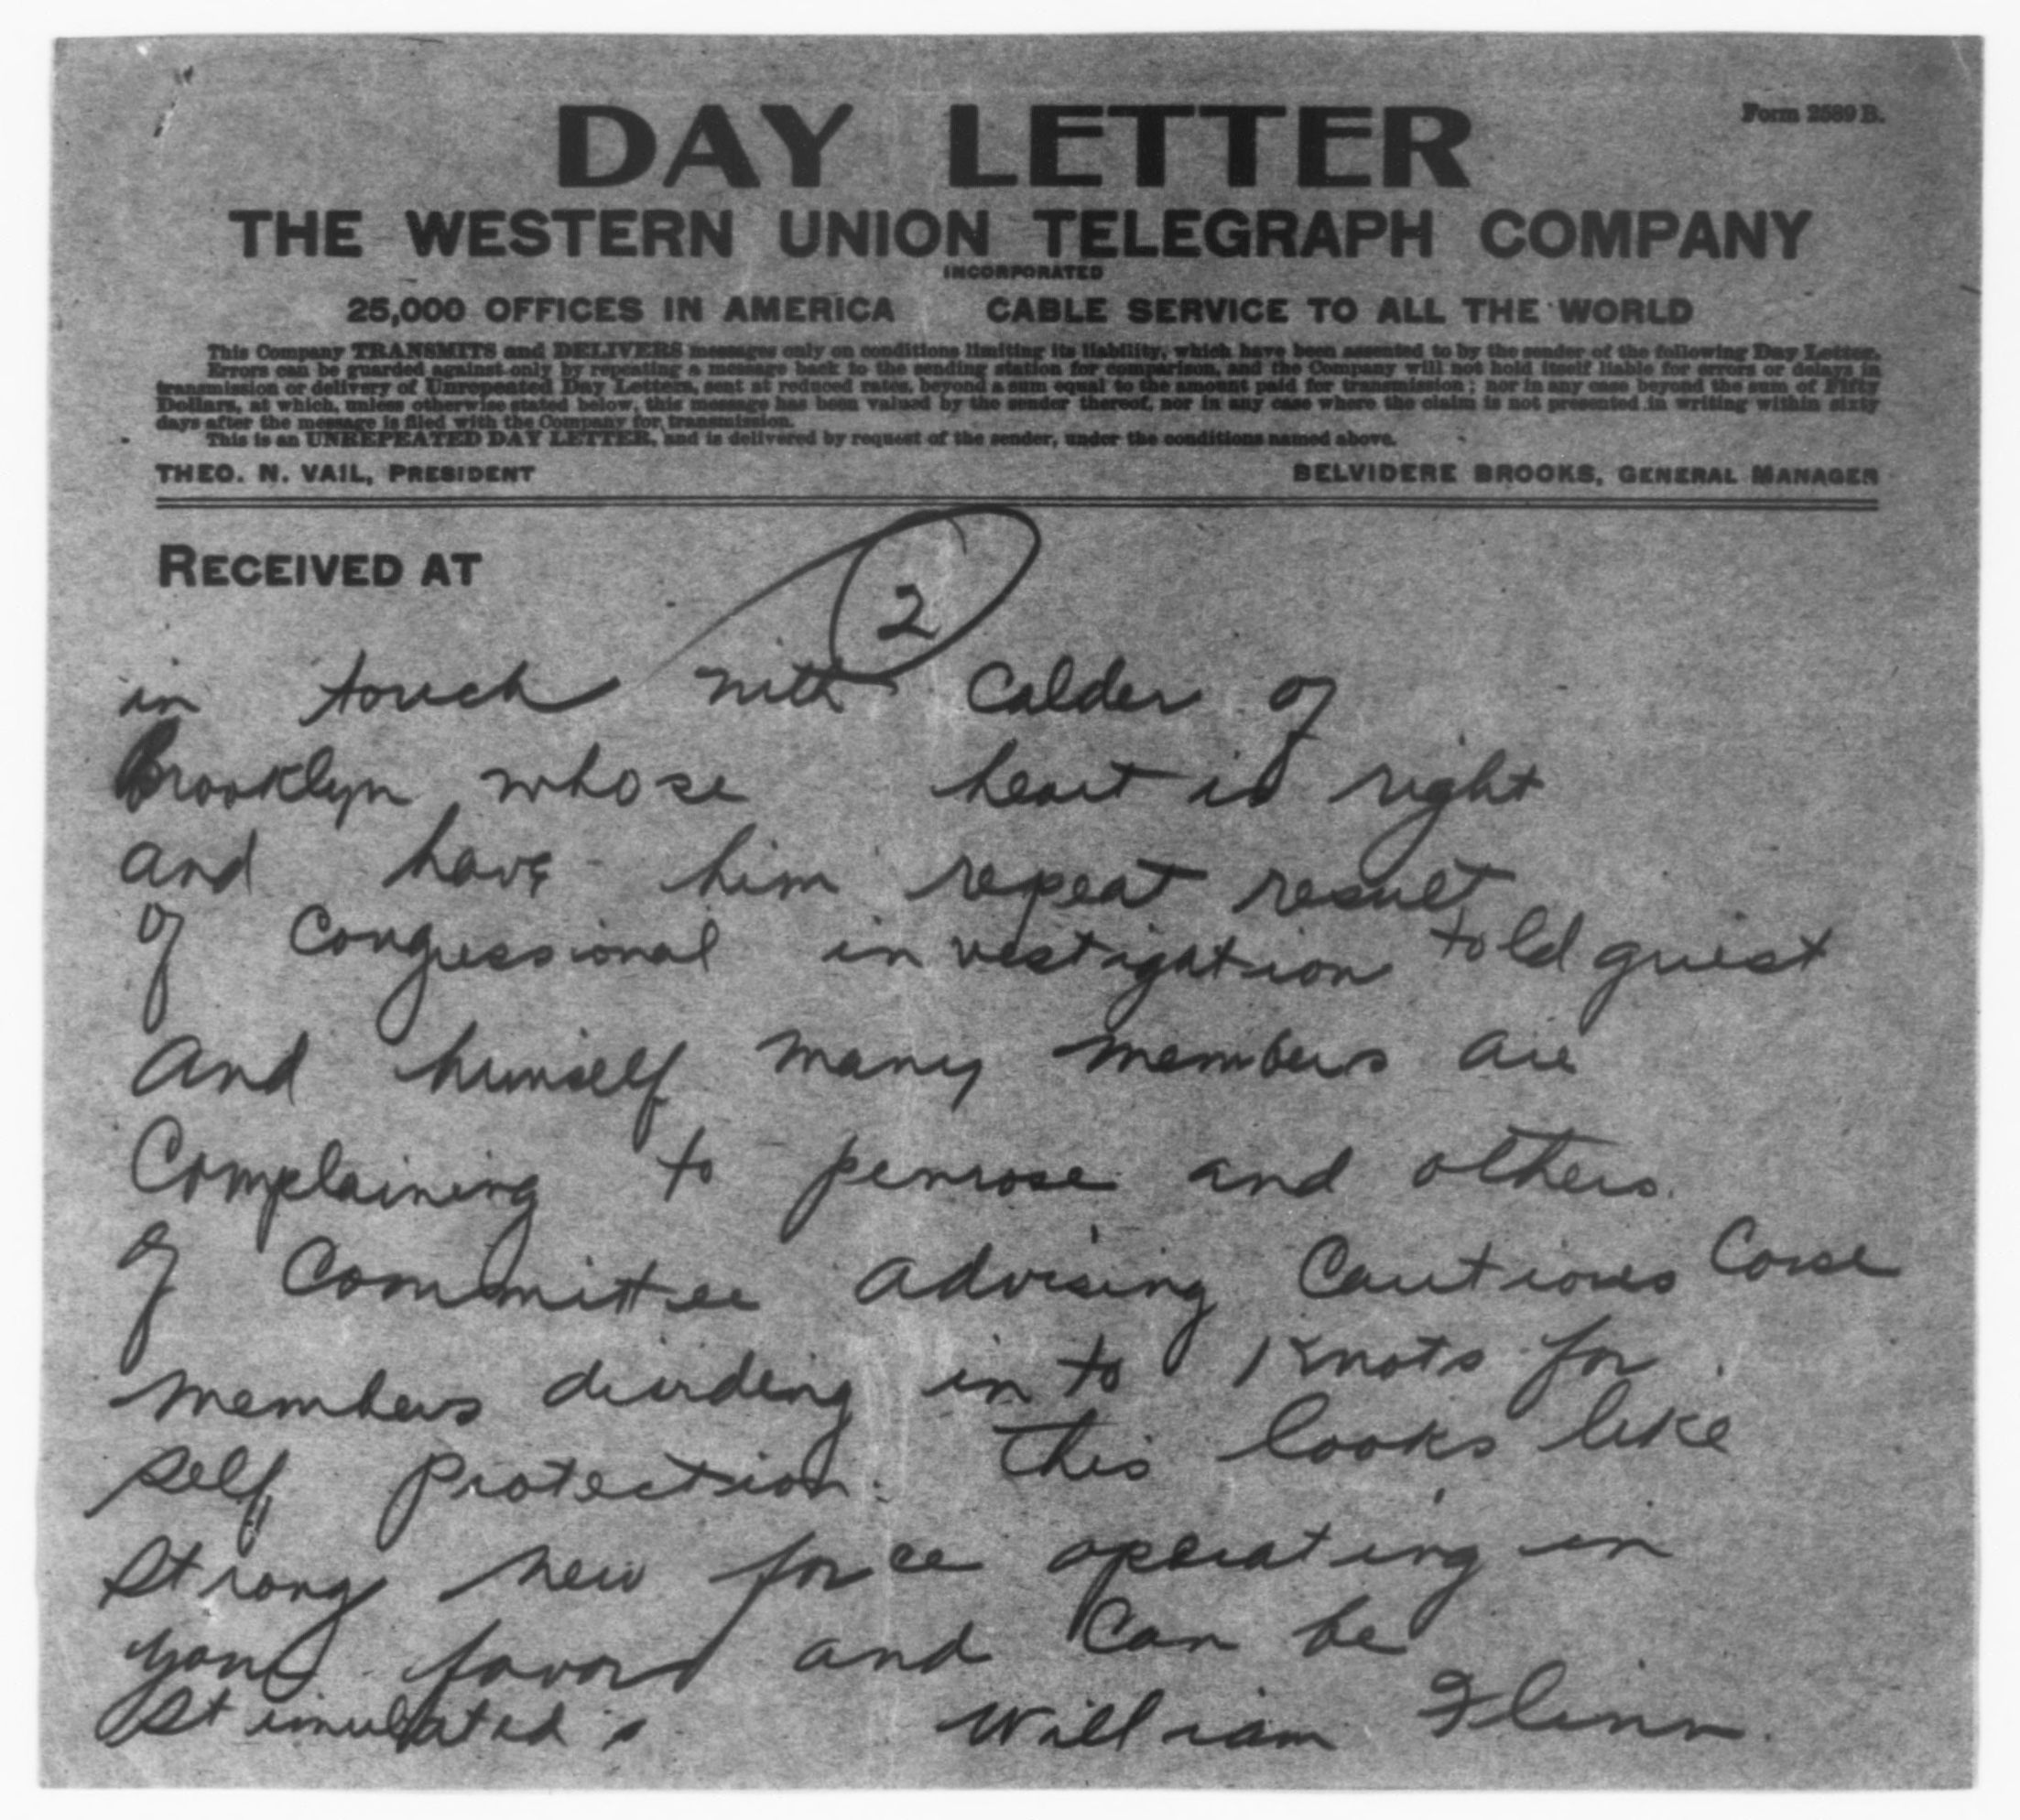 Form 2589 B.
DAY LETTER
THE WESTERN UNION TELEGRAPH COMPANY
INCORPORATED
25,000 OFFICES IN AMERICA CABLE SERVICE TO ALL THE WORLD
This Company TRANSMITS and DELIVERS messages only on conditions limiting its liability, which have been assented to by the sender of the following Day Letter.
Errors can be guarded against only by repeating a message back to the sending station for comparison, and the Company will not hold itself liable for errors or delays in
transmission or delivery of Unrepeated Day Letters, sent at reduced rates, beyond a sum equal to the amount paid for transmission; nor in any case beyond the sum of Fifty
Dollars, at which, unless otherwise stated below, this message has been valued by the sender thereof, nor in any case where the claim is not presented in writing within sixty
days after the message is filed with the Company for transmission.
This is an UNREPEATED DAY LETTER, and is delivered by request of the sender, under the conditions named above.
THEO. N. VAIL, PRESIDENT BELVIDERE BROOKS, GENERAL MANAGER
RECEIVED AT
2
in touch with Calder of
Brooklyn whose heart is right
and have him repeat result
of Congressional investigation told griest
and himself many members are
Complaining to penrose and others
of Committee advising Cautious Corse
members dividing in to Knots for
self protection. This looks like
strong new force operating in
your favor and can be
stimulated. William Flinn.